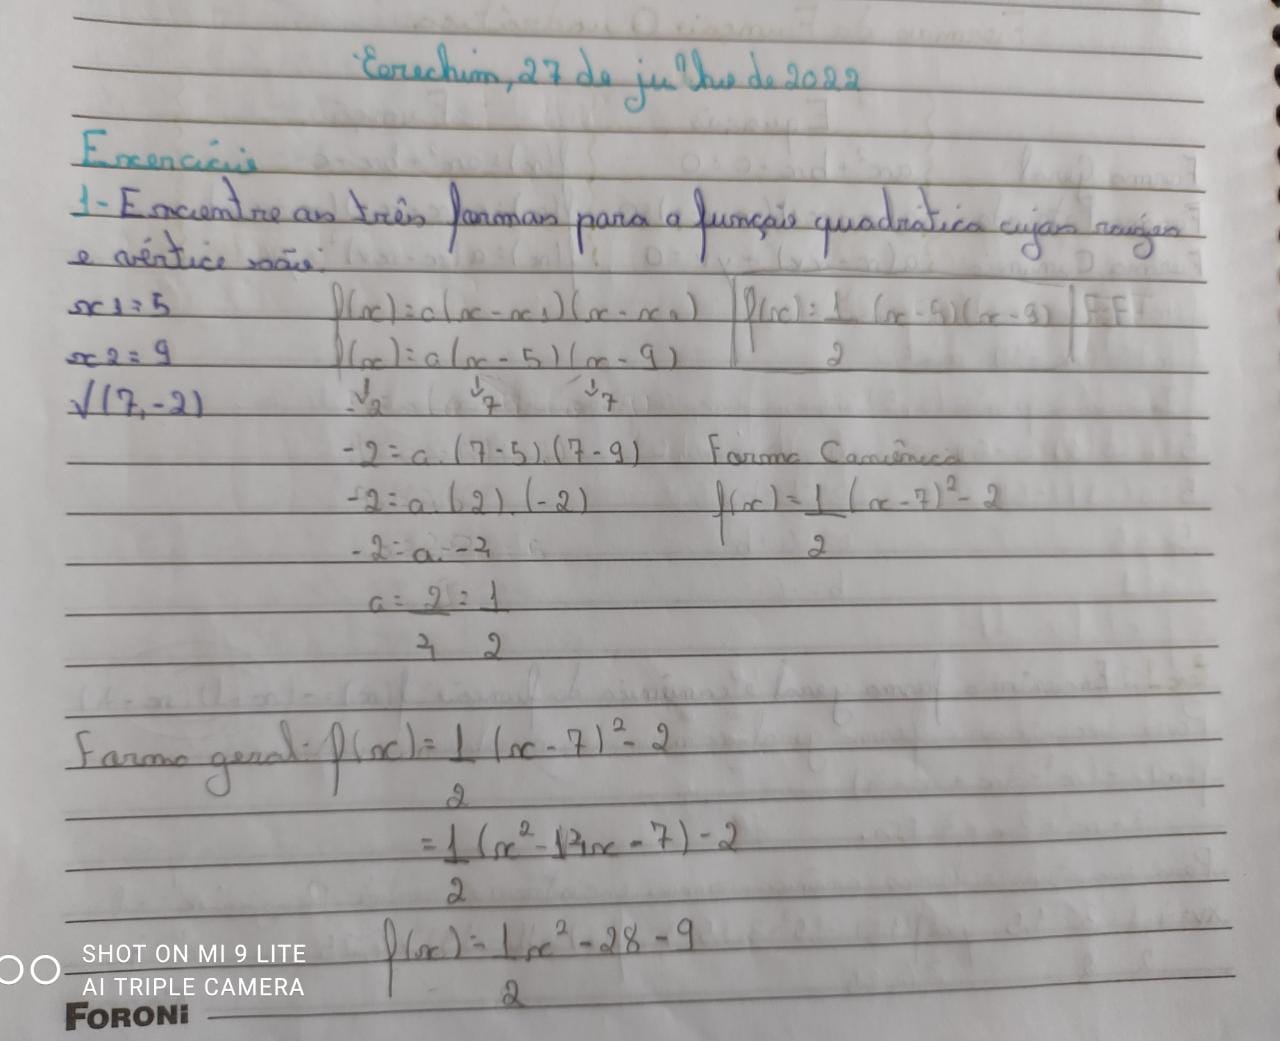 Erechim, 27 de julho de 2022
Exercícios
1- Encontre as três formas para a função quadrática cujas raízes
e vértice são:
x1=5
x2=9
V(7,-2)
f(x)=a(x-x1)(x-x2)
f(x)=a(x-5)(x-9)
-2 7 7
-2=a.(7-5).(7-9)
-2=a.(2).(-2)
-2=a.-4
a=2/4=1/2
f(x)=1/2(x-5)(x-9) FF
Forma Canônica
f(x)=1/2(x-7)²-2
Forma geral: f(x)=1/2(x-7)²-2
=1/2(x²-14x-7)-2
f(x)=1/2x²-28-9
SHOT ON MI 9 LITE
AI TRIPLE CAMERA
FORONI